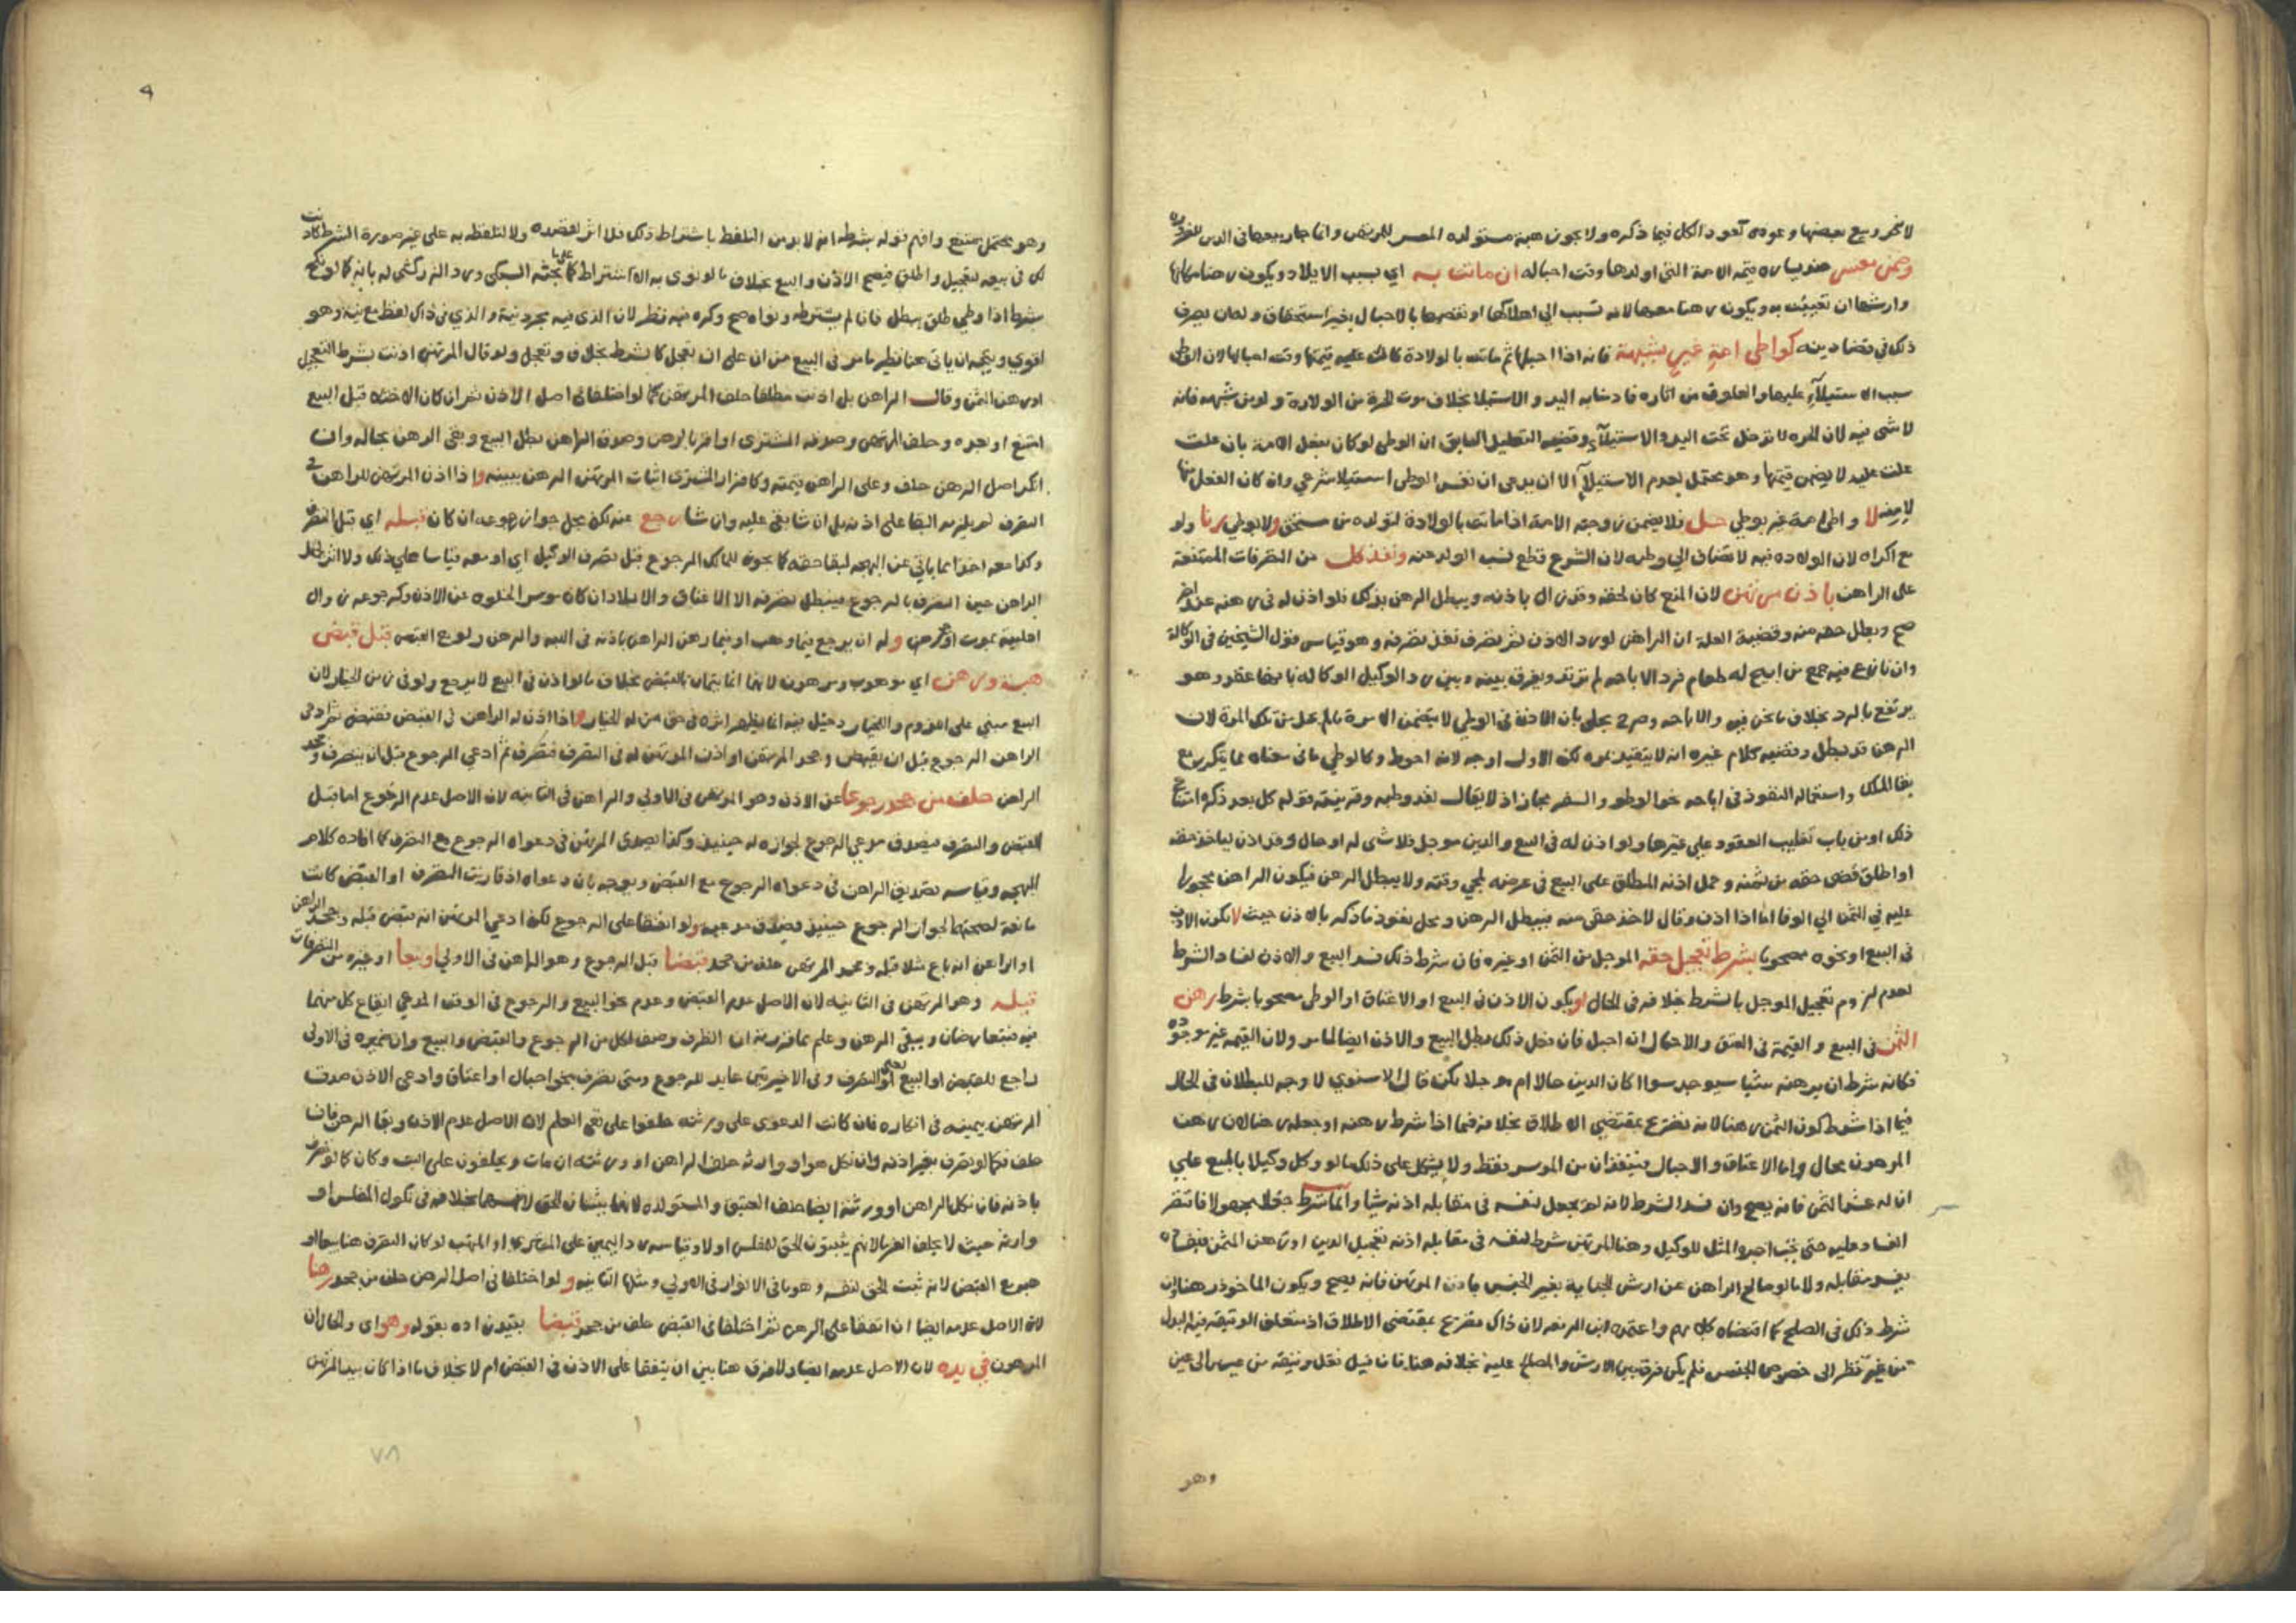 وضمن معسر
اي بسبب الايلاد ويكون رهنا مكانها
وارشها ان نقصت به ويكون رهنا معها لانه تسبب الي اهلاكها او نقصها بالاحبال بغير استحقاق وله ان يصرف
ذلك في قضا دينه كواطي امة غير بشبهة فانه اذا احبلها ثم ماتت بالولادة كانت عليه قيمتها وقت احبالها لان الوطي
سبب الاستيلآءِ عليها والعلوق من اثاره فادمنا به اليد والاستيلا بخلاف موت الحرة من الولادة ولو من شبهة فانه
لا شي فيه لان الحره لا تدخل تحت اليد والاستيلآءِ وقضية التعليل السابق ان الوطي لو كان بفعل الامة بان علت
عليه لا يضمن قيمتها وهو محتمل لعدم الاستيلآء الا ان يدعى ان نفس الوطي استيلا شرعي وان كان الفعل منها
لا واطي
حل فلا يضمن زوجته الامة اذا ماتت بالولادة لتولده من مستحق ولا بوطي زنا ولو
مع اكراه لان الولاده فيه لا تضاف الي وطيه لان الشرع قطع نسب الولد عنه ونفذ كل من التصرفات الممتنعة
على الراهن باذن مرتهن لان المنع كان لحقه وقد زال باذنه ويبطل الرهن بذلك فلو اذن له في رهنه عند اخر
صح وبطل حقه منه وقضية العلة ان الراهن لو رد الاذن ثم تصرف نفذ تصرفه وهو قياس قول الشيخين في الوكالة
وان نازع فيه جمع من ابيح له طعام فرد الاباحه لم ترتد ويفرق بينه وبين رد الوكيل الوكالة بانها عقد وهو
يرتفع بالرد بخلاف ما نحن فيه
الرهن قد بطل وقضيه كلام غيره انه لا يتقيد بمره لكن الاول اوجه لانه احوط وكالوطي ما في معناه مما يتكرر مع
بقا الملك واستعماله النفوذ في اباحه نحو الوطو والسفر مجاز اذ لا يقال نفذ وطيه وقرينته قوله كل بعد ذكره امتناع
ذلك او من باب تغليب العقود على غيرها ولو اذن له في البيع والدين موجل فلا شي له او حال وقد اذن لياخذ حقه
او اطلق قضى حقه من ثمنه وحمل اذنه المطلق على البيع في غرضه لمجي وقته ولا يبطل الرهن فيكون الراهن محجورا
عليه في الثمن الي الوفا اما اذا اذن وقال لا خذ حقي منه فيبطل الرهن ومحل نفوذ ما ذكر بالاذن حيث لا يكون الاذن
في البيع او نحوه مصحوبا بشرط تعجيل حقه الموجل من الثمن او غيره فان شرط ذلك فسد البيع والاذن لفساد الشرط
لعدم لزوم تعجيل الموجل بالشرط بخلافه في الحال او يكون الاذن في البيع او الاعتاق او الوطي مصحوبا بشرط رهن
الثمن في البيع والقيمة في العتق والاحبال ان احبل فان فعل ذلك بطل البيع والاذن ايضا لما مر ولان القيمه غير موجوده
فكانه شرط ان يرهنه شيا سيوجد سوا اكان الدين حالا ام موجلا لكن قال الاسنوي لا وجه للبطلان في الحال
فيما اذا شرط كون الثمن رهنا لانه تصريح بمقتضى الاطلاق بخلافه فيما اذا شرط رهنه او جعله رهنا لان رهن
المرهون محال واما الاعتاق والاحبال فينفذان من الموسر فقط ولا يشكل على ذلك ما لو وكل وكيلا بالبيع على
ان له عشر الثمن فانه يصح وان فسد الشرط لانه لم يجعل لنفسه في مقابله اذنه شيا وانما شرط جعلا مجهولا فاقتصر
الفساد عليه حتى تجب اجرة المثل للوكيل وهنا المرتهن شرط لنفسه في مقابله اذنه تعجيل الدين او رهن الثمن
مقابله ولا ما لو صالح الراهن عن ارش الجناية بغير الجنس باذن المرتهن فانه يصح ويكون الماخوذ رهنا ان
شرط ذلك في الصلح كما اقتضاه كلامهم واعتمده ابن الرفعه لان ذاك تصريح بمقتضى الاطلاق اذ متعلق الوثيقه فيه البدل
من غير نظر الى خصوص الجنس فلم يكن فرق بين الارش والمصالح عليه بخلافه هنا فان فيه نقل وثيقه من عين الى عين
وهو
٩
وهو محتمل ممتنع وافهم قوله بشرطه انه لا بد من التلفظ باشتراط ذلك فلا اثر لقصده ولا لتلفظه به على غير صورة الشرط كاذنت
لك في بيعه لتعجيل واطلق فيصح الاذن والبيع بخلاف ما لو نوى به الاشتراط كما بحثه السبكى ورد الزركشي له بانه كما لو نكح
بشرط اذا وطي طلق يبطل فان لم يشترطه ونواه صح وكره فيه نظر لان الذي فيه مجرد نية والذي في ذاك لفظ مع نية وهو
اقوي ويتجه ان ياتي هنا نظير ما مر في البيع من ان على ان تعجل كالشرط بخلاف وتعجل ولو قال المرتهن اذنت بشرط التعجيل
او رهن الثمن وقال الراهن بل اذنت مطلقا حلف المرتهن كما لو اختلفا في اصل الاذن ثم ان كان الاختلاف قبل البيع
امتنع او بعده وحلف المرتهن وصدقه المشترى او اقر بالرهن وصدق الراهن بطل البيع وبقي الرهن بحاله وان
انكر اصل الرهن حلف وعلى الراهن قيمته وكاقرار المشترى اثبات المرتهن الرهن ببينه واذا اذن المرتهن للراهن في
التصرف لم يلزمه البقا على اذنه بل ان شا بقي عليه وان شا رجع عنه لكن محل جواز رجوعه ان كان قبله اي قبل التصرف
وكذا معه اخذا مما ياتي عن البهجه لبقا حقه كما يجوز للمالك الرجوع قبل تصرف الوكيل اي او معه قياسا على ذلك ولا اثر لجهل
الراهن حين التصرف بالرجوع فيبطل تصرفه الا الاعتاق والايلاد ان كان موسرا لخلوه عن الاذن وكرجوعه زوال
اهليته بموت او نحوه وله ان يرجع فيما وهب او فيما رهن الراهن باذنه في الهبه والرهن ولو مع القبض قبل قبض
هبة ورهن اي موهوب ومرهون لانهما انما يتمان بالقبض بخلاف ما لو اذن في البيع لا يرجع ولو في زمن الخيار لان
البيع مبني على اللزوم والخيار دخيل فيه انما يظهر اثره في حق من له الخيار واذا اذن له الراهن في القبض فقبض ثم ادعى
الراهن الرجوع قبل ان يقبض وجحد المرتهن او اذن المرتهن له في التصرف فتصرف ثم ادعي الرجوع قبل ان يتصرف وجحد
الراهن حلف من جحد رجوعا عن الاذن وهو المرتهن في الاولي والراهن في الثانيه لان الاصل عدم الرجوع اما قبل
القبض والتصرف فيصدق مدعي الرجوع لجوازه له حينيذ وكذا يصدق المرتهن في دعواه الرجوع مع التصرف كما افاده كلام
البهجه وقياسه تصديق الراهن في دعواه الرجوع مع القبض ويوجه بان دعواه اذ قارنت التصرف او القبض كانت
مانعة لصحتهما لجواز الرجوع حينيذ فصدق مدعيه ولو اتفقا على الرجوع لكن ادعي المرتهن انه قبض قبله وجحد الراهن
او الراهن انه باع مثلا قبله وجحد المرتهن حلف من جحد قبضا قبل الرجوع وهو الراهن في الاولي او بيعا او غيره من التصرفات
قبله وهو المرتهن في الثانيه لان الاصل عدم القبض وعدم نحو البيع والرجوع في الوقت المدعي ايقاع كل منهما
فيه فيتعارضان ويبقى الرهن وعلم مما قررته ان الظرف وصف لكل من الرجوع والقبض والبيع وان ضميره في الاولى
راجع للقبض او البيع او التصرف وفي الاخيرتين عايد للرجوع ومتى تصرف بنحو احبال او اعتاق وادعى الاذن صدق
المرتهن بيمينه في انكاره فان كانت الدعوى على ورثته حلفوا على نفي العلم لان الاصل عدم الاذن وبقا الرهن فان
حلف فكما لو تصرف بغير اذنه وان نكل هو او وارثه حلف الراهن او ورثته ان مات ويحلفون على البت وكان كما لو تصرف
باذنه فان نكل الراهن او ورثته ايضا حلف العتيق والمستولده لانهما يثبتان الحق لانفسهما بخلافه في نكول المفلس او
وارثه حيث لا يحلف الغرما لانهم يثبتون الحق للمفلس اولا وقياسه رد اليمين على المشتري او المتهب لو كان التصرف هنا بيعا او
هبة مع القبض لانه ثبت الحق لنفسه وهو ما في الانوار في الاولي ومثلها الثانيه ولو اختلفا في اصل الرهن حلف من جحد رهنا
لان الاصل عدمه ايضا ان اتفقا على الرهن ثم اختلفا في القبض حلف من جحد قبضا بقيد زاده بقوله وهو اي والحال ان
المرهون في يده لان الاصل عدمه ايضا ولا فرق هنا بين ان يتفقا على الاذن في القبض ام لا بخلاف ما اذا كان بيد المرتهن
٧٨